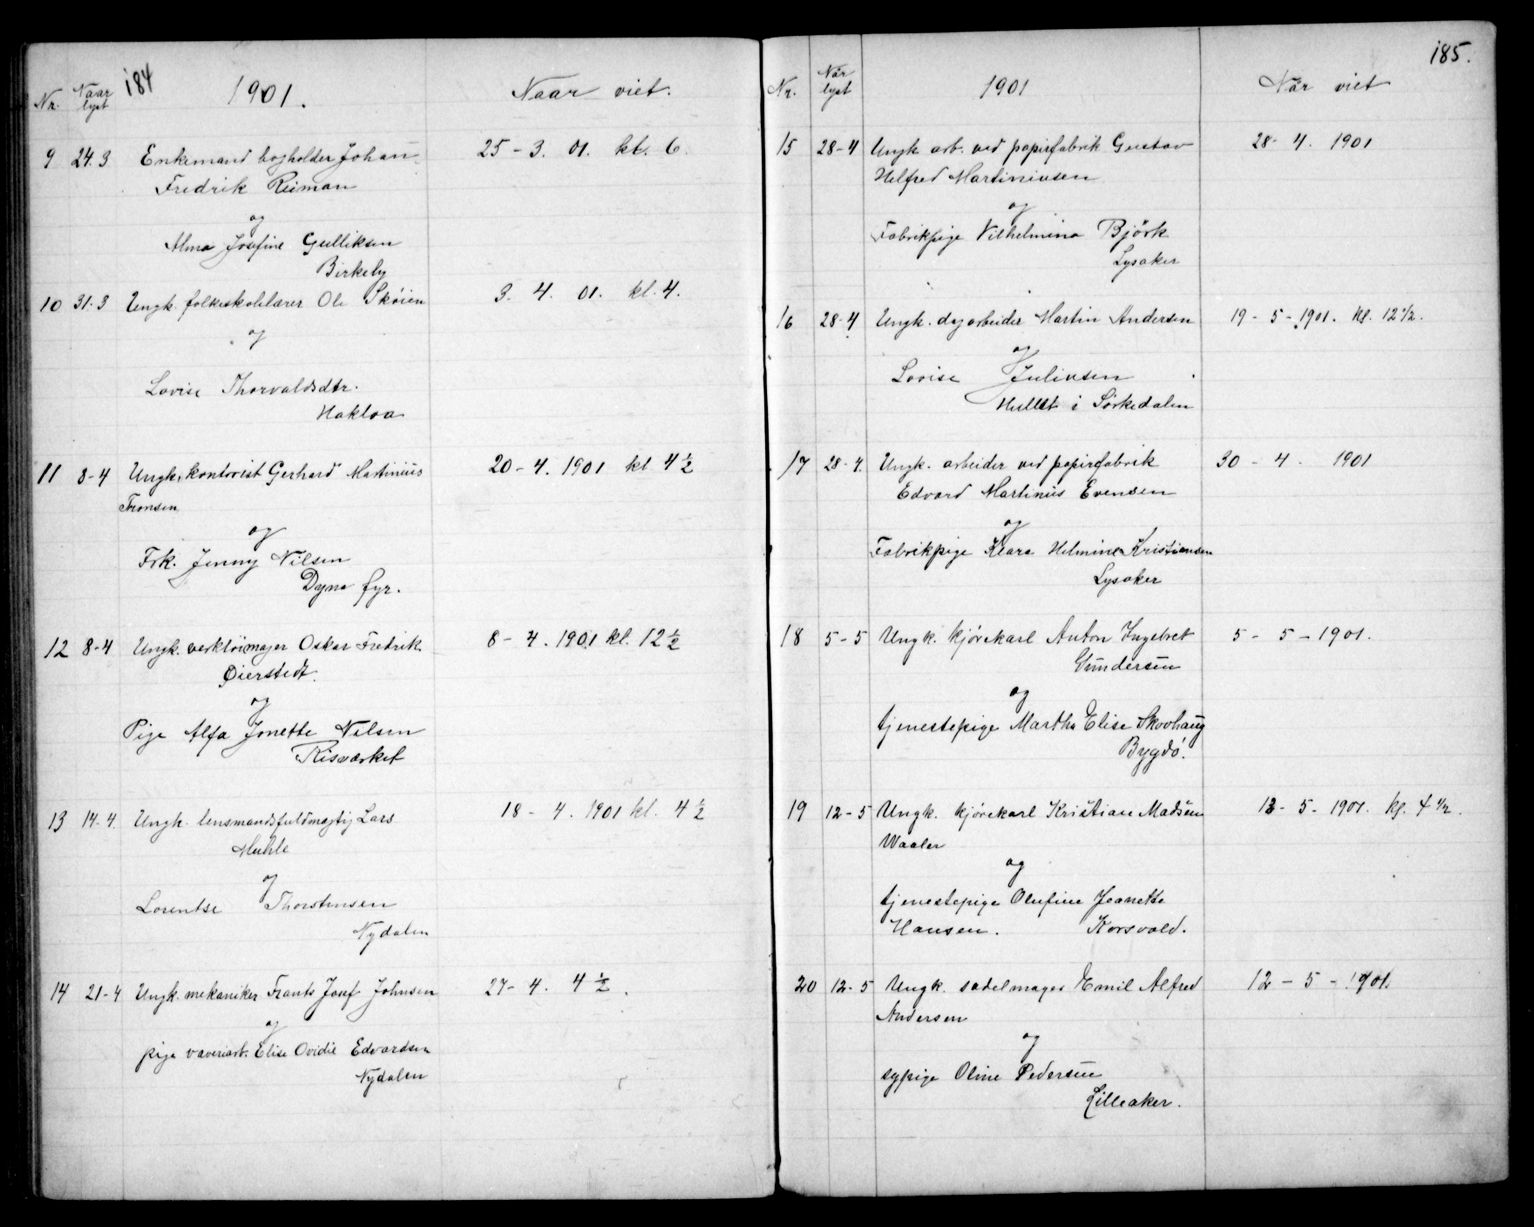 184
Nr. Naar lyst 1901. Naar viet.
9 24.3 Enkemand bogholder Johan 25-3. 01. kl. 6.
Fredrik Reiman
og
Alma Josefine Gulliksen
Birkeby
10 31.3 Ungk. folkeskolelærer Ole Skøien 3. 4. 01. kl. 4.
og
Lovise Thorvaldsdtr.
Hakloa
11 8-4 Ungk. kontorist Gerhard Martinius 20-4. 1901 kl 4 1/2
Thonsen
og
Frk. Jenny Nilsen
Dyna fyr.
12 8-4 Ungk. verktöimager Oskar Fredrik 8-4. 1901 kl. 12 1/2
Öierstedt.
og
Pige Alfa Jonette Nilsen
Risværket
13 14-4. Ungk. lensmandsfuldmægtig Lars 18-4. 1901 kl. 4 1/2
Muhle
og
Lorentse Thorstensen
Nydalen
14 21-4 Ungk. mekaniker Frants Josef Johnsen 27-4. 4 1/2.
og
pige væveriarb. Elise Ovidie Edvardsen
Nydalen
185.
Nr. Når lyst 1901 Når viet
15 28-4 Ungk. arb. ved papirfabrik Gustav 28-4. 1901
Helfred Martiniusen
og
Fabrikpige Vilhelmina Björk
Lysaker
16 28-4 Ungk. dagarbeider Martin Andersen 19-5-1901. kl. 12 1/2.
og
Lovise Juliusen
Hullet i Sörkedalen
17 28-4. Ungk. arbeider ved papirfabrik 30-4-1901
Edvard Martinius Evensen
og
Fabrikpige Klara Helmine Kristiansen
Lysaker
18 5-5 Ungk. kjörekarl Anton Ingebret 5-5-1901.
Gundersen
og
tjenestepige Martha Elise Skovhaug
Bygdö.
19 12-5 Ungk. kjörekarl Kristian Madsen 12-5-1901. kl. 4 1/2.
Waaler
og
tjenestepige Olufine Jeanette
Hansen. Korsvold.
20 12-5 Ungk. sadelmager Emil Alfred 12-5-1901.
Andersen
og
sypige Oline Pedersen
Lilleaker.